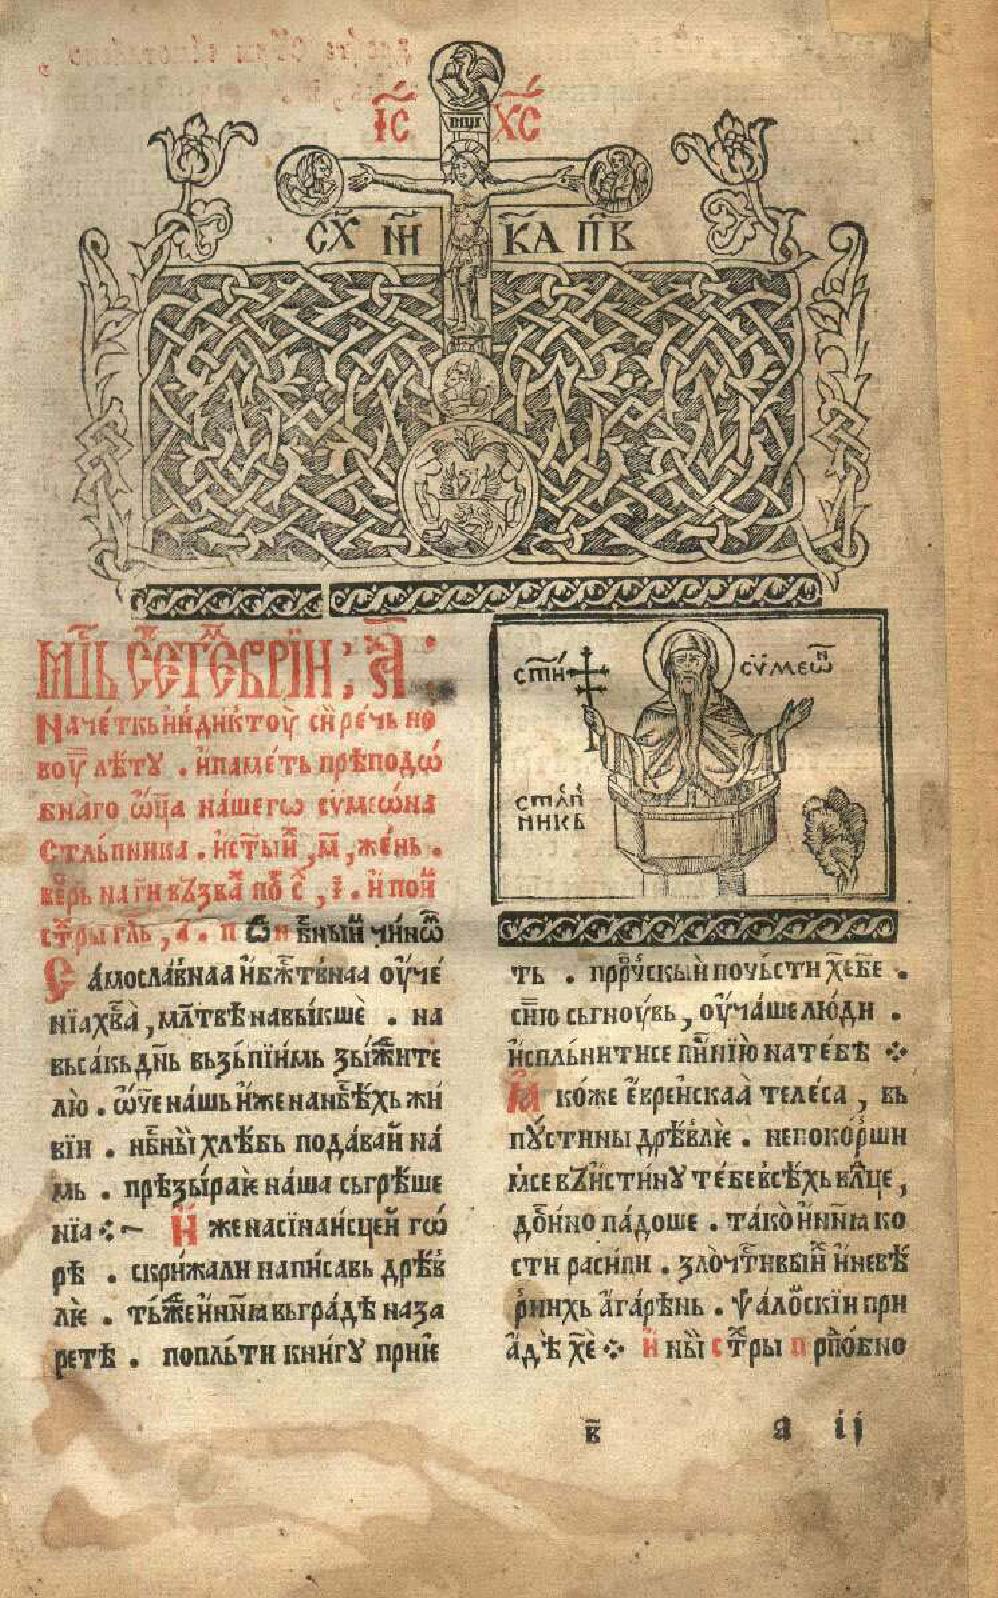 І҃С Х҃С
СХ҃ НН҃ К҃А П҃В
Мⷭ҇Ць Сеⷫ҇теⷨ҇врїи , а҃ :
Наче́ткь и҆нди́ктоу сирѣчь но́
воу лѣ́ту . и҆ паме́ть прѣподѡ́
бнаго ѡц҃а на́шего сѷмеѡ́на
Стлъпника . и҆ ст҃ыи҆ , м҃ , же́нь .
гл҃ь , д҃ .
ст҃и сѷмеѡⷩ҇
стлъп
никь
Са́мославнаа и҆ бж҃твнаа оу҆че́
нїа хв҃а , мл҃твѣ навы́кше . на
вьса́кь дн҃ь вьзъпїи́мь зы̀жⷣите
лю̀ . ѡ҆ч҃е на́шь и҆же на нб҃сѣхь жи
вїи . нб҃ны̏ хлѣ́бь пода́ваи на́
мь . прѣзы́раѥ на́ша сьгрѣше
нїа ⁘~ И҆же на сїнаи́сцеи гѡ́
рѣ . скри́жали напи́савь дрѣ́в
лѥ . тъ́жⷣе и нн҃ꙗ вьгра́дѣ наза
ре́тѣ . попль́ти кни́гу приѥ́
ть . прⷪ҇рⷱ҇скыи̏ почьсти хе҃бе .
сїю̀ сьгноу́вь , оу҆ча́ше лю́ди .
и҆спль́нитисе пѣ́нїю на те́бѣ ⁘
Ꙗ҆коже е҆вре́искаа̀ теле́са , вь
пу́стины дрѣ́влѥ . непокоⷬ҇рши
мсе вꙁи́стину те́бе всѣ́хь влⷣце ,
до́ино па́доше . та́ко и нн҃ꙗ ко
сти раси́пи . зло̀чⷭ҇тивыи́хь и҆ невѣ́
рнихь а҆га́рѣнь . ѱа́лоⷨ҇скїи при
а́дѣ хе҃ ⁘ и҆ ны̏ стⷯ҇ры прⷣпо́бно
в҃ а ii